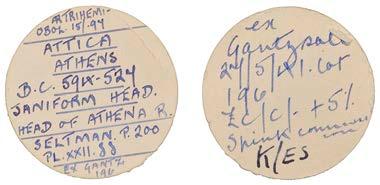 TRIHEMI-
OBOL. 15/94
ATTICA
ATHENS
B.C. 591X-524
JANIFORM HEAD.
HEAD OF ATHENA R.
SELTMAN. P. 200
PL. XXII. 
EX GANTZ
196
ex
Gantz sale
24/5/ lot
196/
£C/C/- +5%
Spink
K/ES